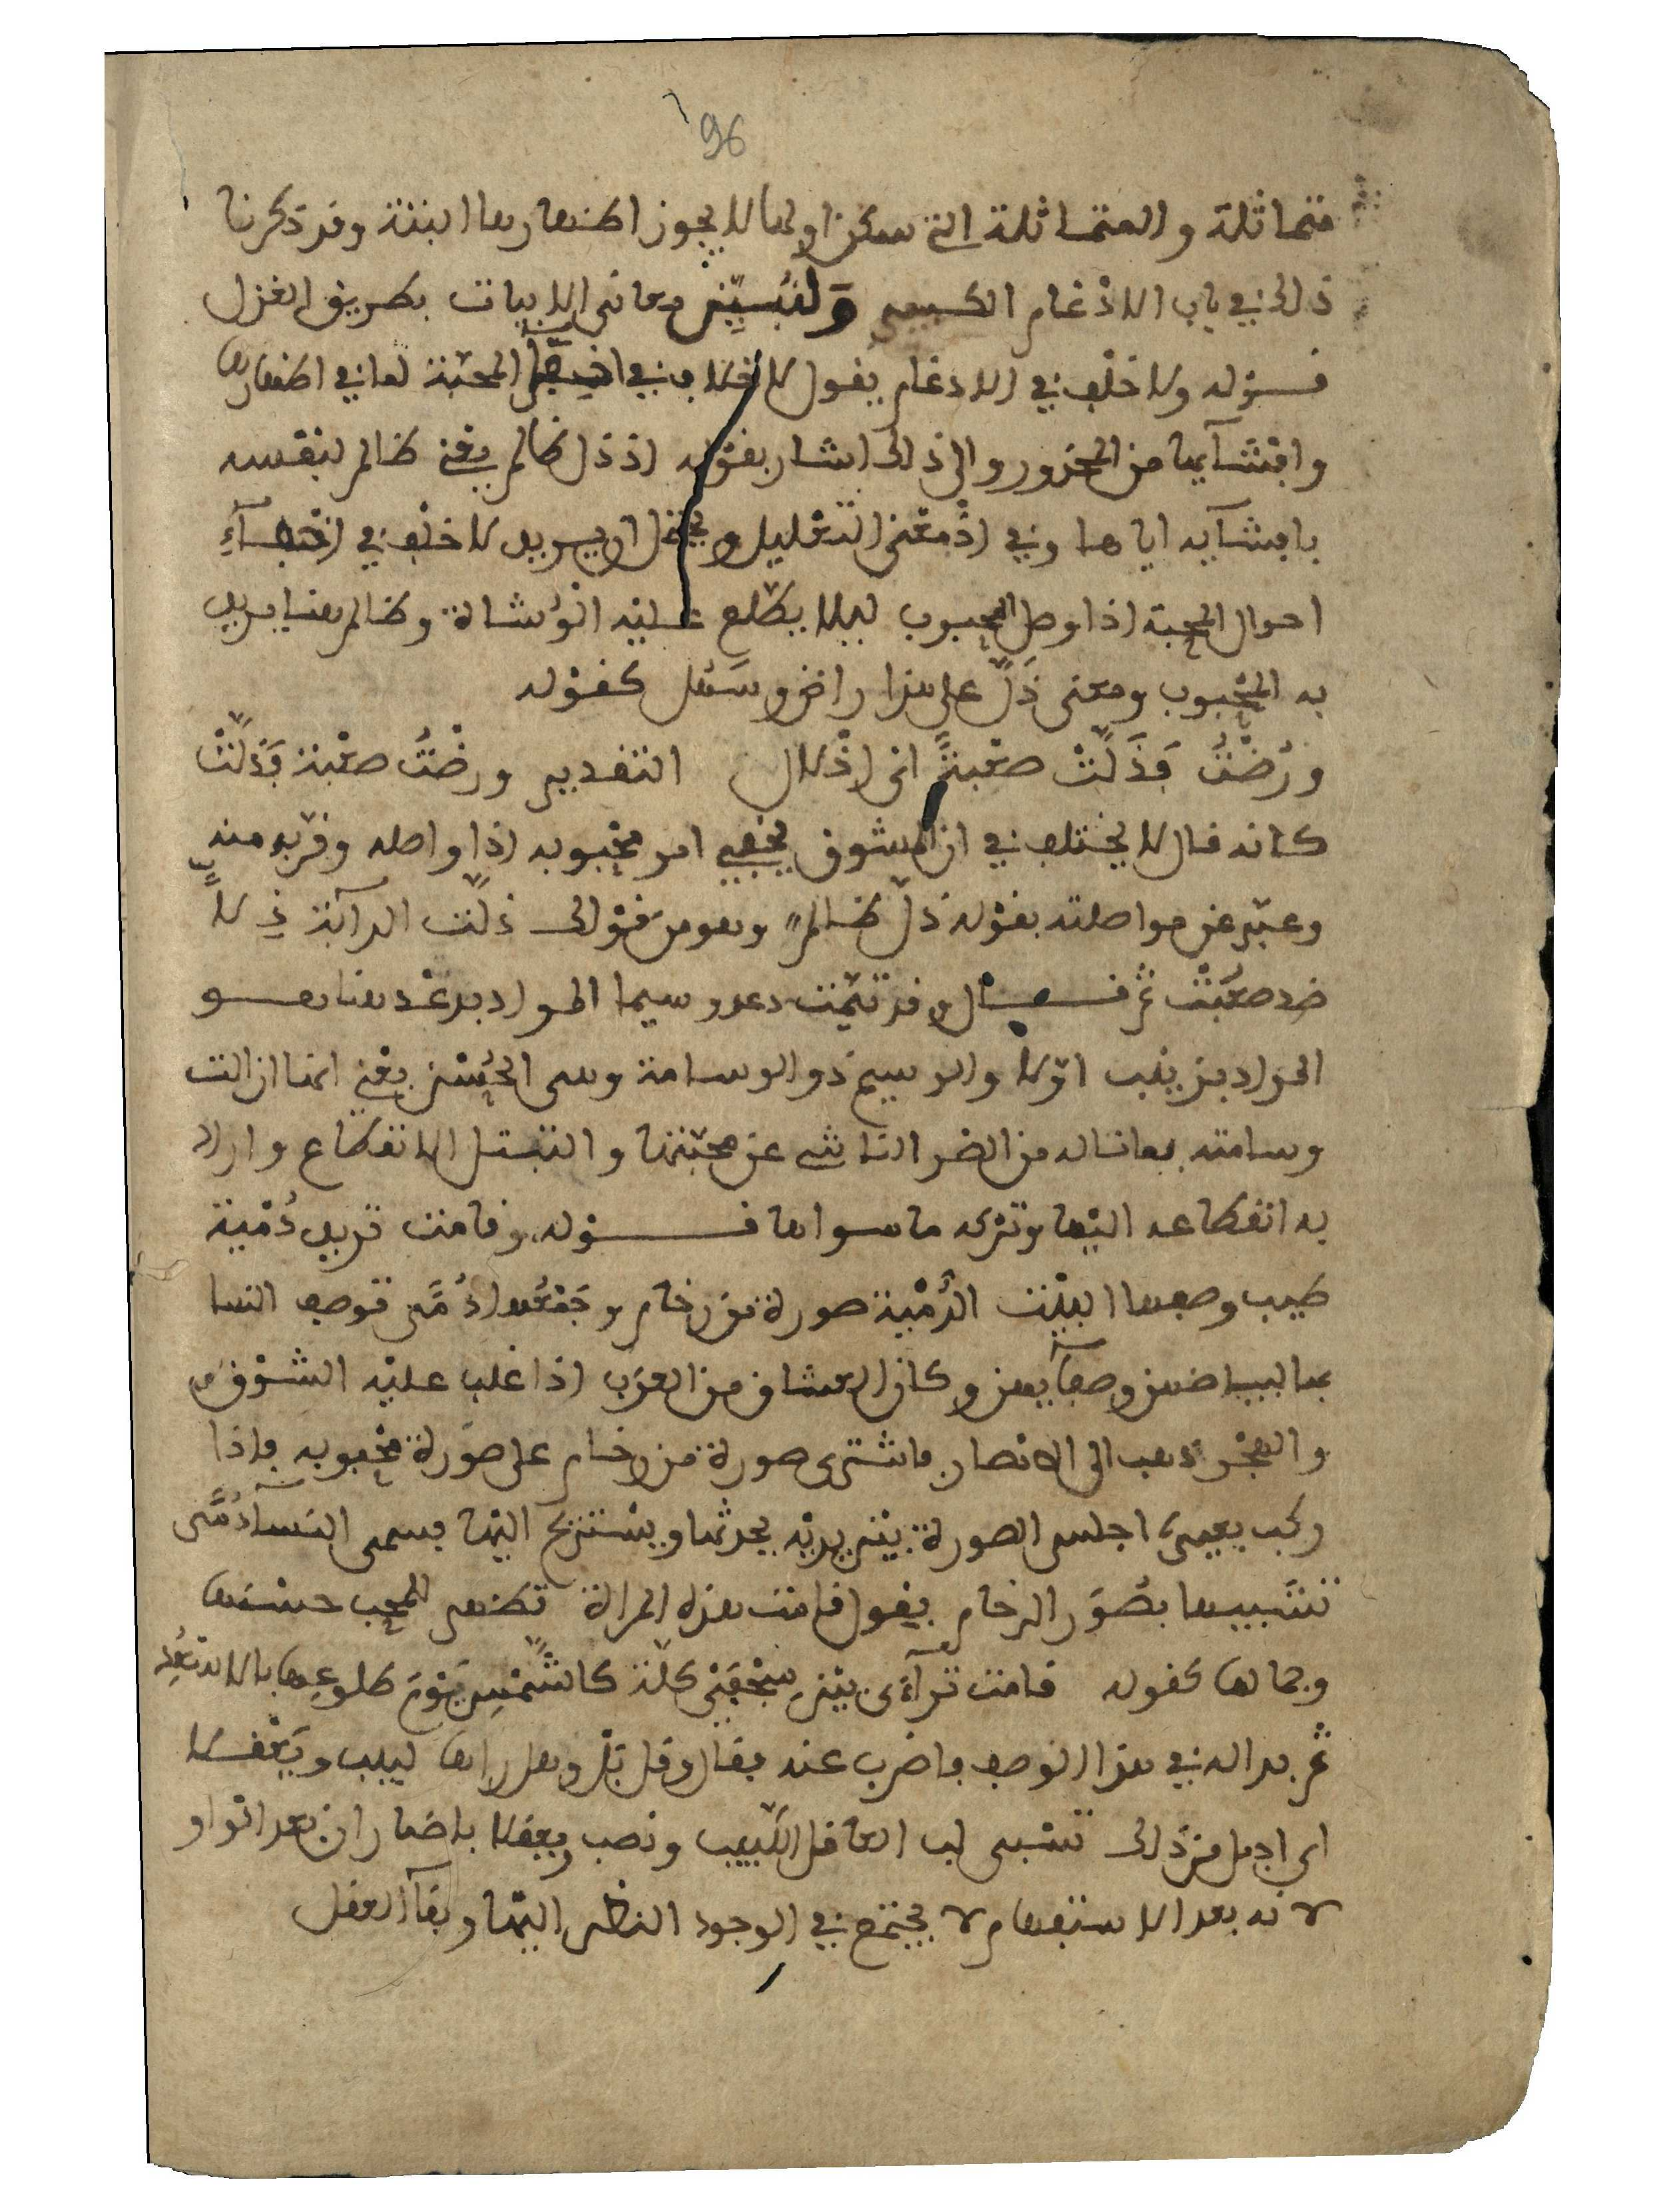 96
متماثلة والمتماثلة التي سكن اولها لا يجوز اظهارها البتة وقد ذكرنا
ذلك في باب الادغام الكبير ولنبين معاني الابيات بطريق الغزل
قوله ولا خلف في الادغام يقول لا خلاف في المحبة لما في اظهارها
وافشآيها من المحذور والى ذلك اشار بقوله اذ ذل ظالم يعني ظالم لنفسه
بافشآيه اياها وفي اذ معنى التعليل ويحتمل ان يريد لا خلف في اخفآء
احوال المحبة اذا وصل المحبوب ليلا يطلع عليه الوشاة وظالم هنا يريد
به المحبوب ومعنى ذل على هذا راض وسهل كقوله
ورضت فذلت صعبة اي اذلال التقدير ورضت صعبة فذلت
كانه قال لا يختلف في ان المشوق يخفي امر محبوبه اذا واصله وقربه منه
وعبر عن مواصلته بقوله ذل ظالم وهو من قولك ذلت الدآبة ذلا
ضد صعبت ثم قال وقد تيمت دعد وسيما المراد بدعد هنا هو
المراد بزينب اولا والوسيم ذو الوسامة وهي الحسن يعني انها ازالت
وسامته بما ناله من الضر الناشي عن محبتها والتبتل الانقطاع واراد
به انقطاعه اليها وتركه ما سواها قوله وقامت تريه دمية
طيب وصفها البيت الدمية صورة من رخام وجمعها دمى توصف النسا
بها لبياضهن وصفآيهن وكان العشاق من العرب اذا غلب عليه الشوق
والهجر ذهب الى الانصار فاشترى صورة من رخام على صورة محبوبه فاذا
ركب بعيره اجلس الصورة بين يديه يحدثها ويستريح اليها فسمى النسآ دمى
تشبيها بصور الرخام يقول قامت هذه المراة تظهر للمحب حسنها
وجمالها كقوله قامت ترآءى بين سجفي كلة كالشمس يوم طلوعها بالاسعد
ثم بدا له في هذا الوصف فاضرب عنه فقال وقل بل وهل راها لبيب ويعقلا
اي اجمل من ذلك تشبي لب العاقل اللبيب ونصب ويعقلا باضمار ان بعد الواو
لانه بعد الاستفهام لا يجتمع في الوجود النظر اليها وبقآ العقل